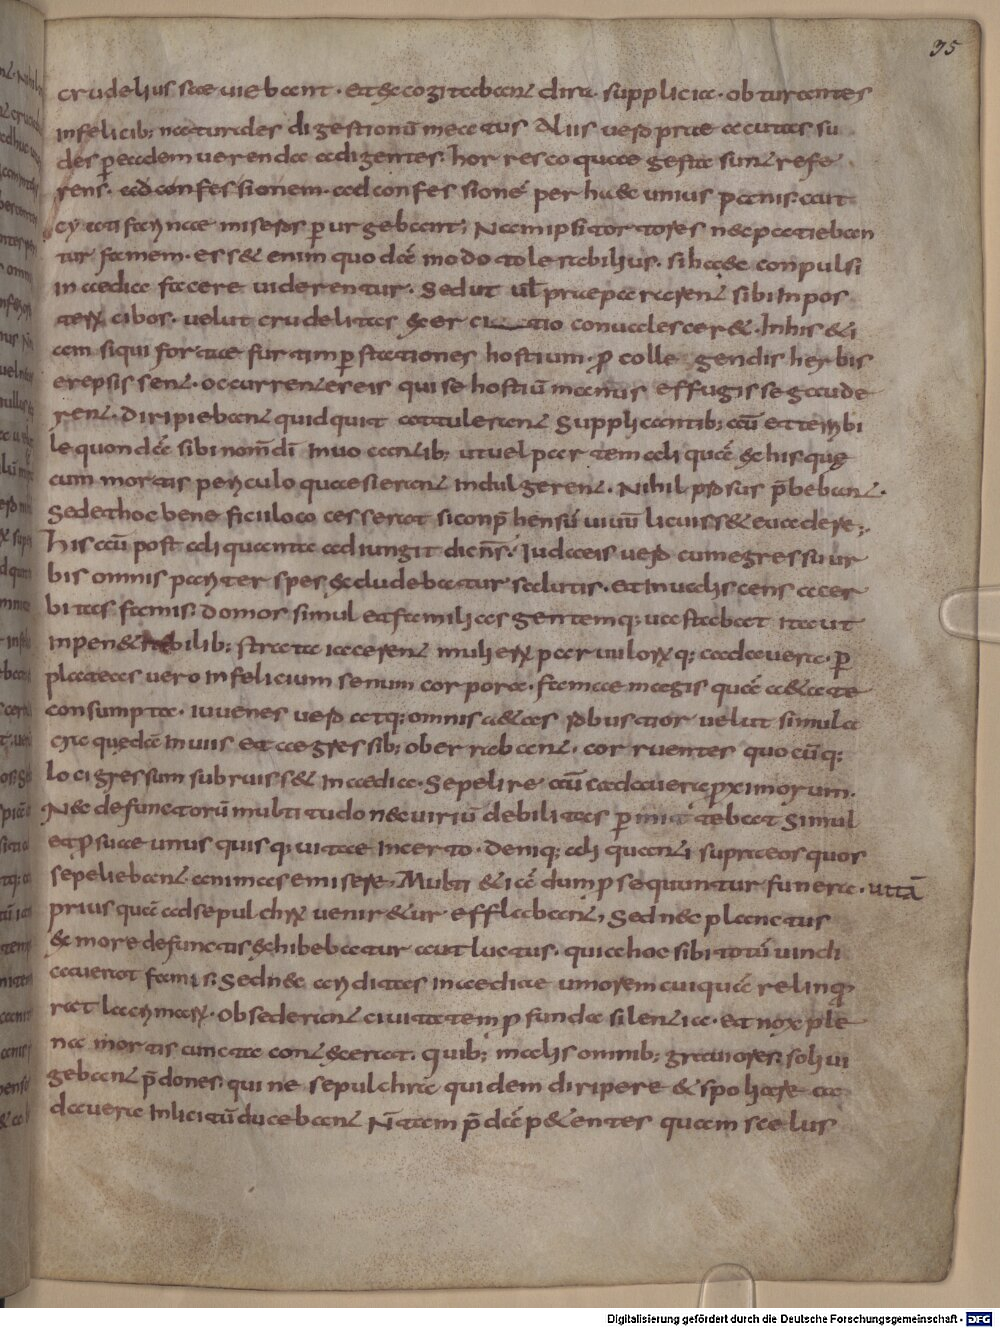 35
crudelius saeuiebant. et excogitabant dira supplicia. obturantes
infelicib; naturales digestionū meatus Aliis uero praeacutas su
des ꝑ eadem uerenda adigentes. horresco quae gesta sunt refe
rens. ad confessionem. ad confessionē perhaec unius panis. aut
cyati farinae miseros ꝑurgebant; Nam ipsi tortores nec patieban
tur famem. esset enim quodā modo tolerabilius. si hac conpulsi
inaedia facere uiderentur. Sed ut uł praepararent sibi in pos
terū cibos. uelut crudelitas exercitio conualesceret. In his et
iam si qui forte furtim ꝑ stationes hostium. ꝓ collegendis herbis
erepsissent. occurrentes eis qui se hostiū manus effugisse gaude
rent. diripiebant quidquit attulerant Supplicantib; cū et terribi
le quondā sibi nom̄ dī inuocantib; ut uel partem aliquā ex his quę
cum mortis periculo quaesierant indulgerent. Nihil prorsus p̄bebant.
Sed et hoc beneficii loco cesserat si conp̄hensū uiuū licuisset euadere;
His cū post aliquanta adiungit dicn̄s. Iudaeis uero cum egressu ur
bis omnis pariter spes excludebatur salutis. et inualiscens acer
bitas famis. domos simul et familias gentemq; uastabat ita ut
in penetrabilib; strata iacerent mulierū paruulorūq; cadauera. ꝑ
plateas uero infelicium senum corpora. fame magis quā aetate
consumpta. iuuenes uero atq; omnis aetas robustior uelut simula
cra quedā in uiis et agressib; oberrabant. corruentes quo cūq;
loci gressum subruisset inaedia. Sepelire cū cadauera proximorum.
Nec defunctorū multitudo nec uiriū debilitas ꝑmittebat Simul
et ꝓ suae unus quisq; uitae incerto. deniq; aliquanti supra eos quos
sepeliebant animas emisere. Multi etiā dum prosequuntur funera. uittā
prius quā ad sepulchrū ueniretur efflabant, Sed nec planctus
ex more defunctis exhibebatur aut luctus. quia hoc sibi totū uindi
cauerat famis. Sed nec ariditas inaediae umorem cuiquā relinq
rat lacrimarū. obsederant ciuitatem ꝓfunda silentia. et nox ple
na mortis cuncta contexerat. quib; malis omnib; grauiores. soli ui
gebant p̄dones. qui ne sepulchra quidem diripere et spoliare ca
dauera inlicitū ducebant Nōtam p̄dā petentes quam scelus
Digitalisierung gefördert durch die Deutsche Forschungsgemeinschaft - DFG